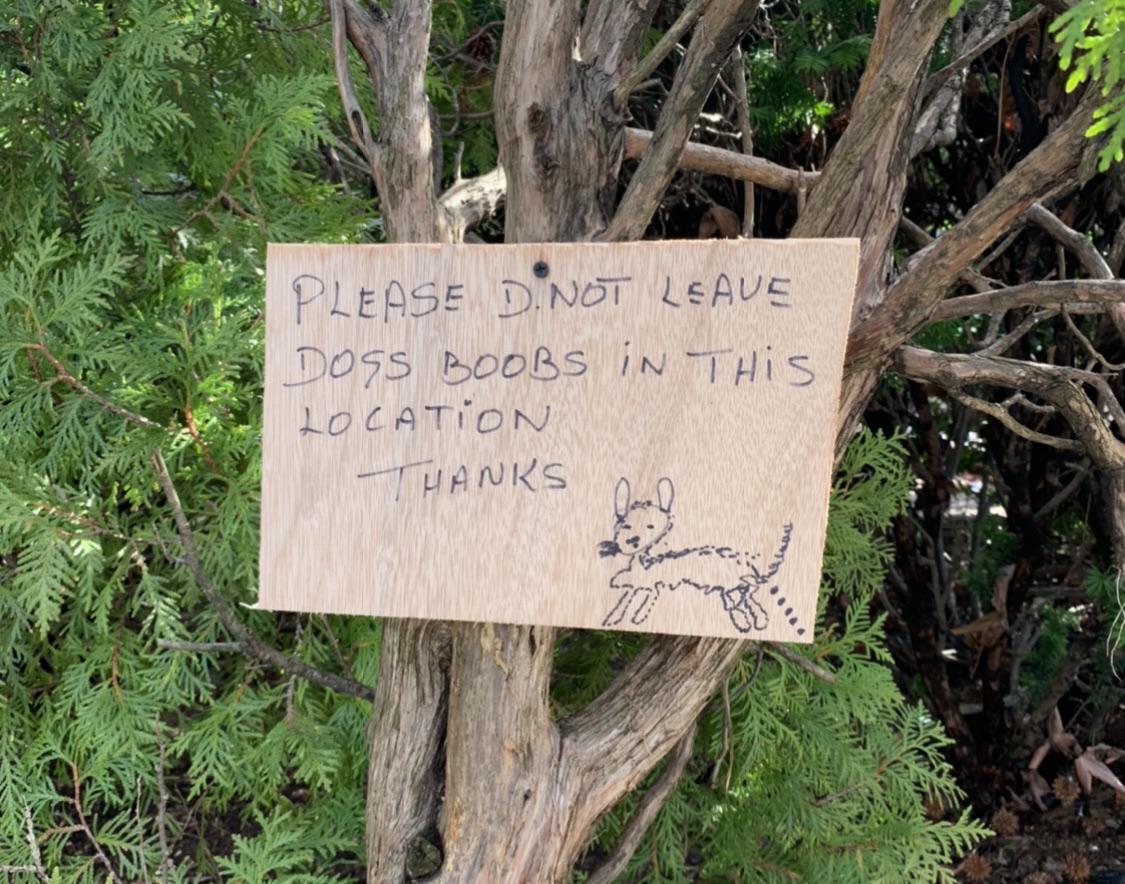 PLEASE D.NOT LEAVE
DOGS BOOBS iN THiS
LOCATiON
THANKS